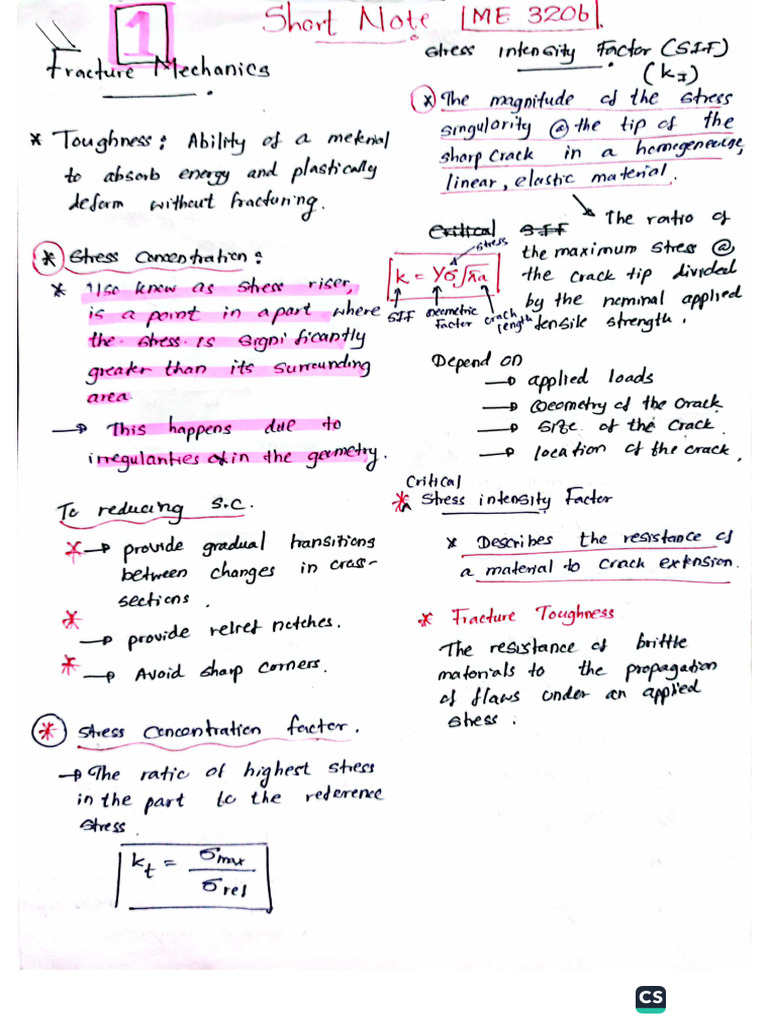 Short Note [ME 3206].
1
Fracture Mechanics
* Toughness: Ability of a meterial
to absorb energy and plastically
deform without fracturing.
* Stress Concentration:
* Also know as stress riser,
is a point in a part where
the stress is significantly
greater than its surrounding
area
→ This happens due to
irregularities in the geometry.
To reducing S.C.
* → provide gradual transitions
between changes in cross-
sections.
* → provide relief notches.
* → Avoid sharp corners.
* Stress Concentration factor.
→ The ratio of highest stress
in the part to the reference
stress.
Kt = σmax / σref
Stress Intensity Factor (S.I.F)
(KI)
* The magnitude of the stress
singularity @ the tip of the
sharp crack in a homogeneous,
linear, elastic material.
Critical SIF
The ratio of
the maximum stress @
the crack tip divided
by the nominal applied
tensile strength.
stress
K = Yσ√πa
SIF Geometric Factor crack length
Depend on
→ applied loads
→ Geometry of the Crack
→ Size of the crack.
→ location of the crack.
Critical
* Stress intensity Factor
* Describes the resistance of
a material to crack extension.
* Fracture Toughness
The resistance of brittle
materials to the propagation
of flaws under an applied
stress.
CS